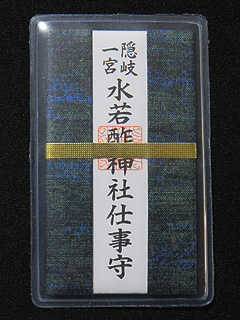 隠岐
一宮
水若酢神社仕事守